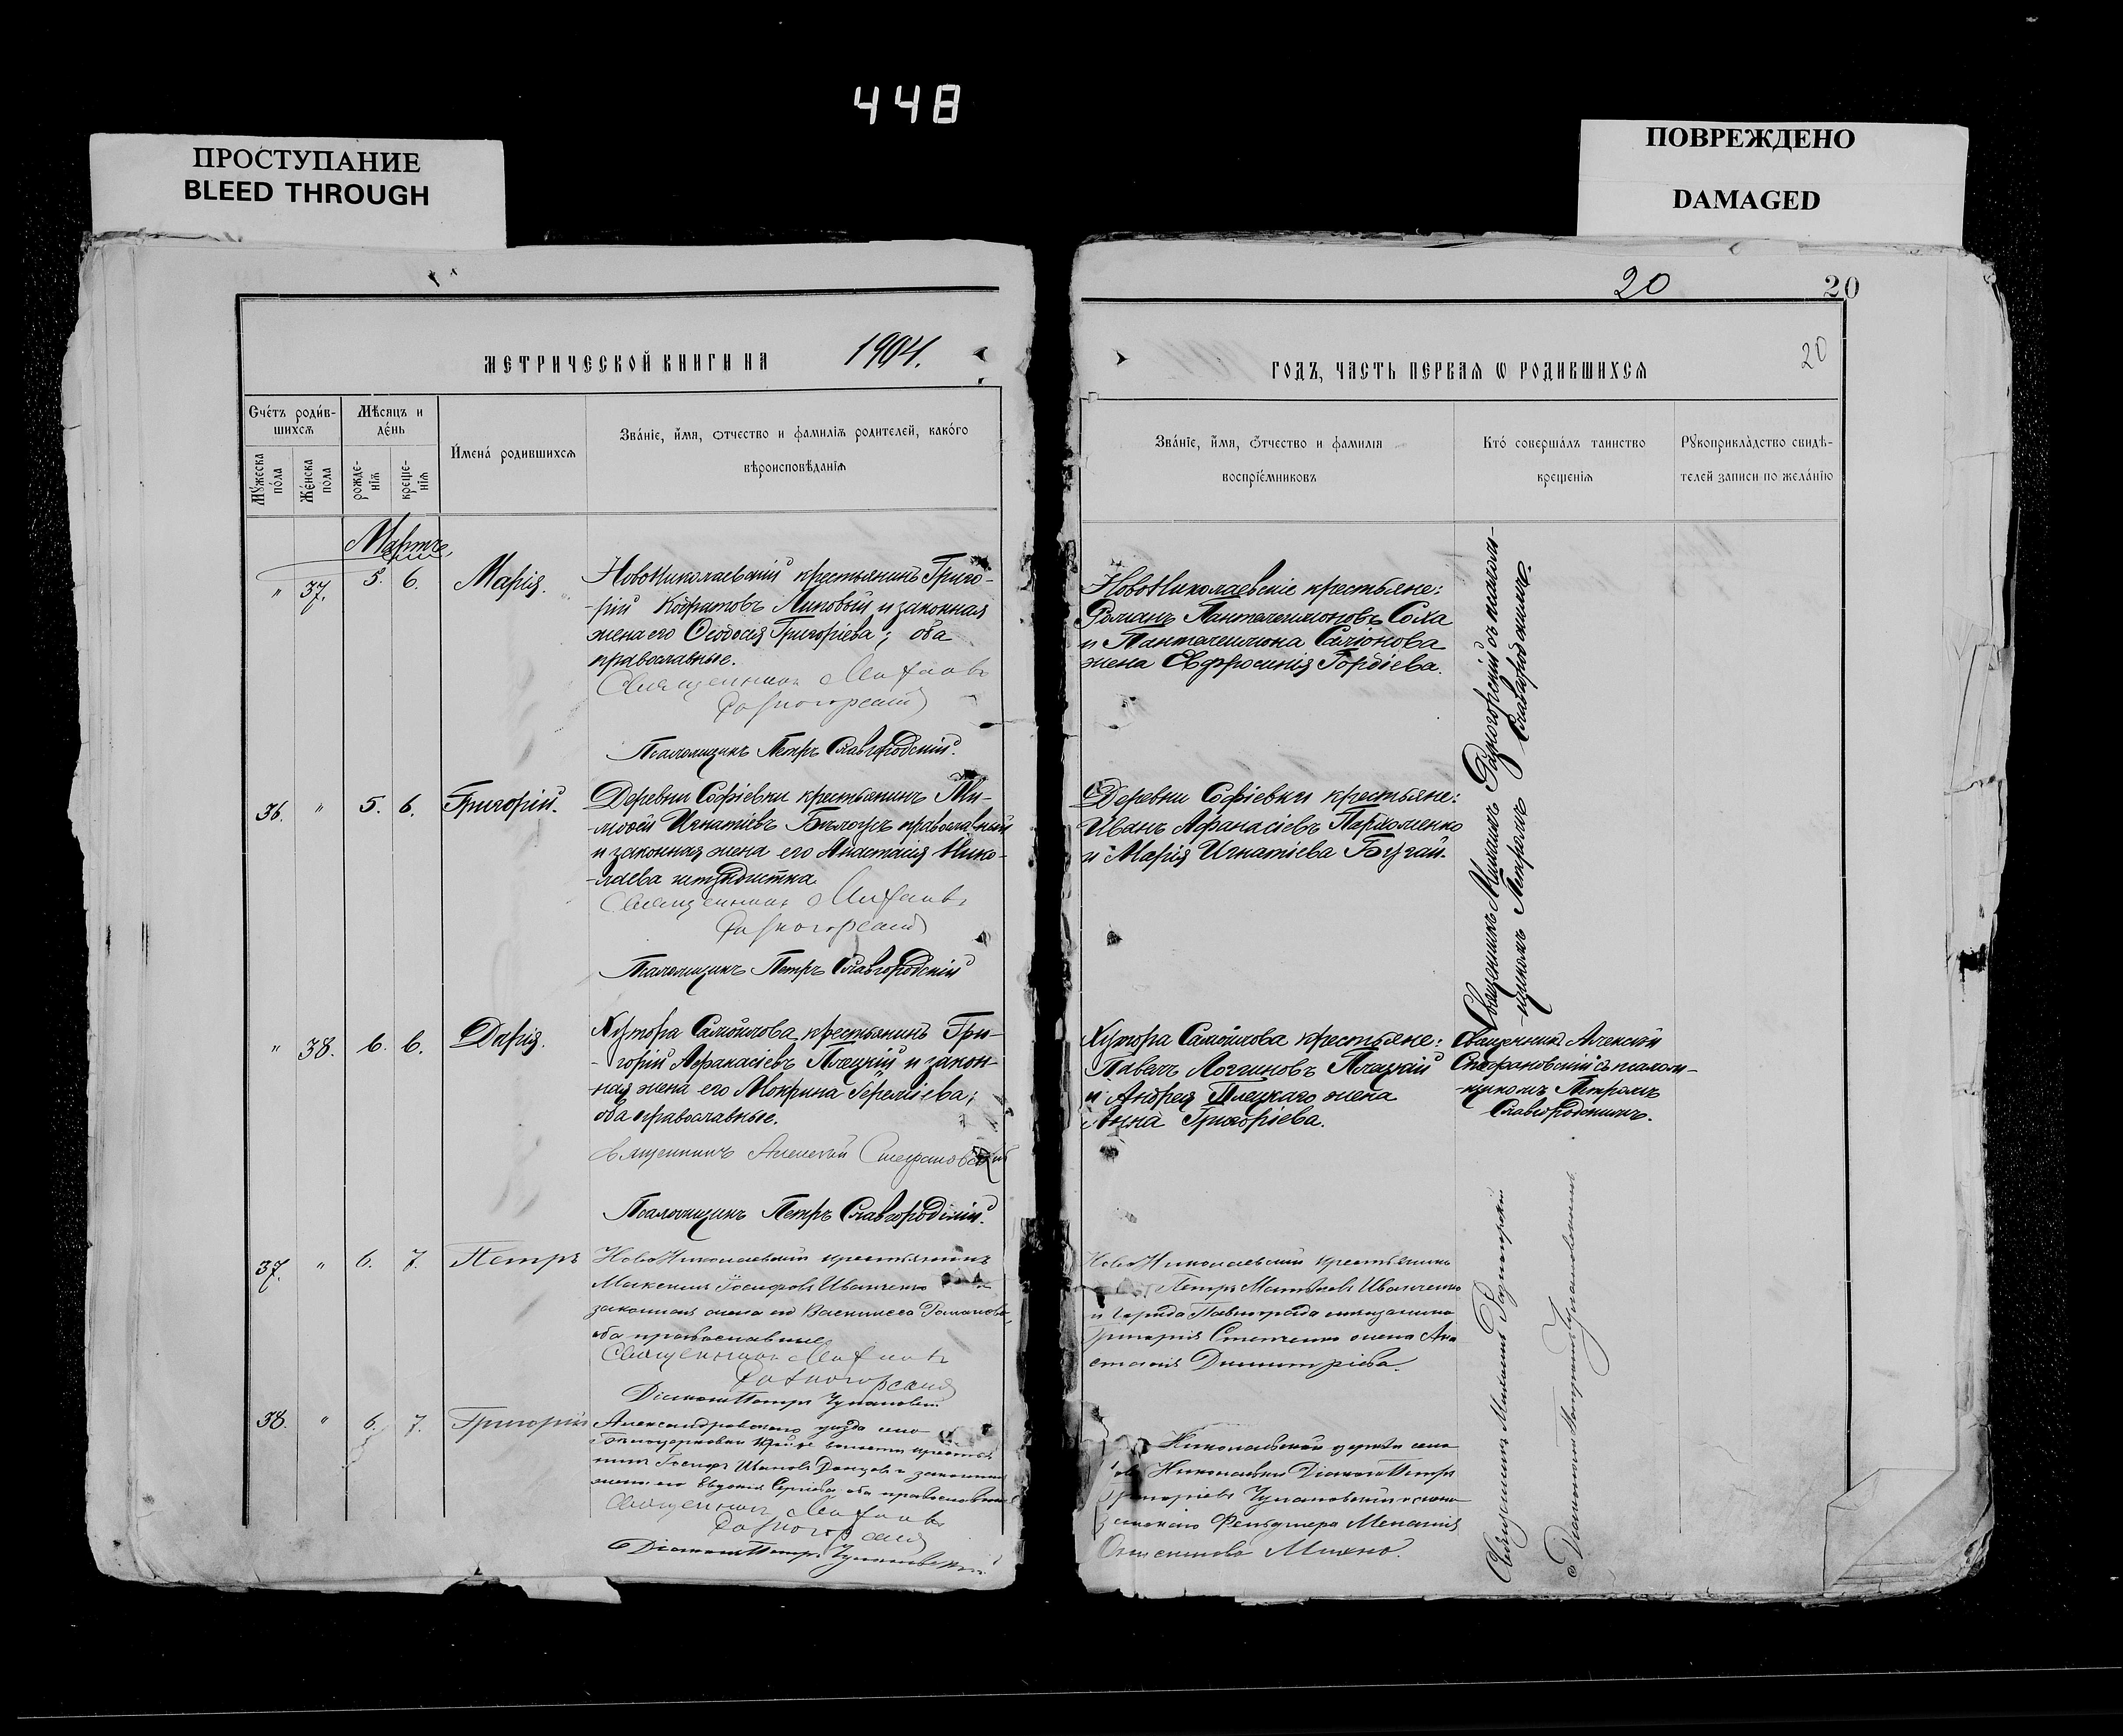 448
ПРОСТУПАНИЕ
BLEED THROUGH
ПОВРЕЖДЕНО
DAMAGED
20
20
20
МЕТРИЧЕСКОЙ КНИГИ НА 1904.
ГОДЪ, ЧАСТЬ ПЕРВАЯ Ѡ РОДИВШИХСЯ
Счетъ родив-
шихся
Мужеска
пола
Женска
пола
Мѣсяцъ и
день
рожде-
нія
креще-
нія
Имена родившихся
Званіе, имя, отчество и фамилія родителей, какого
вѣроисповѣданія
Званіе, имя, отчество и фамилія
воспріемниковъ
Кто совершалъ таинство
крещенія
Рукоприкладство свидѣ-
телей записи по желанію
Мартъ
" 37. 5. 6. Марія.
НовоНиколаевскій крестьянинъ Григо-
-рій Липовый и законная
жена его Ѳеодосія Григоріева; оба
православные.
Священникъ Михаилъ
Разногорскій
Псаломщикъ Петръ Славгородскій.
НовоНиколаевскіе крестьяне:
Романъ Пантелеимоновъ Соха
и Пантелеимона Саліонова
жена Евфросинія Гордіева.
Священникъ Михаилъ Разногорскій съ псалом-
-щикомъ Петромъ Славгородскимъ.
36. " 5. 6. Григорій.
Деревни Софіевки крестьянинъ Ти-
-моѳей Игнатіевъ православный
и законная жена его Анастасія Нико-
-лаева штундистка
Священникъ Михаилъ
Разногорскій
Псаломщикъ Петръ Славгородскій
Деревни Софіевки крестьяне:
Иванъ Афанасіевъ Пархоменко
и Марія Игнатіева Бугай.
" 38. 6. 6. Дарія.
Хутора Самойлова крестьянинъ Гри-
-горій Афанасіевъ Плецкій и закон-
ная жена его Мокрина Іереміева;
оба православные.
Священникъ Алексій Стефановскій
Псаломщикъ Петръ Славгородскій.
Хутора Самойлова крестьяне:
Павелъ Логгиновъ Плецкій
и Андрея Плецкаго жена
Анна Григоріева.
Священникъ Алексій
Стефановскій съ псалом-
-щикомъ Петромъ
Славгородскимъ.
37. " 6. 7. Петръ
НовоНиколаевскій крестьянинъ
Максимъ Іосифовъ Иванченко
законная жена его Васильева Романова,
оба православные
Священникъ Михаилъ
Разногорскій
Діаконъ Петръ Чулановскій
НовоНиколаевскій крестьянинъ
Петръ Матвѣевъ Иванченко
и города Павлограда мещанина
Григорія Степченко жена Ана
стасія Димитріева.
38. " 6. 7. Григорій
Александровскаго уѣзда села
Бѣлоцерковки волости крестья
нинъ Іосифъ Ивановъ Донцовъ и законная
жена его Евдокія Сергіева оба православные
Священникъ Михаилъ
Разногорскій
Діаконъ Петръ Чулановскій
Николаевской церкви села
Николаевки Діаконъ Петръ
Григоріевъ Чулановскій и жена
земскаго Фельдшера Меланія
Михно.
Священникъ Михаилъ Разногорскій
Діаконъ Петръ Чулановскій